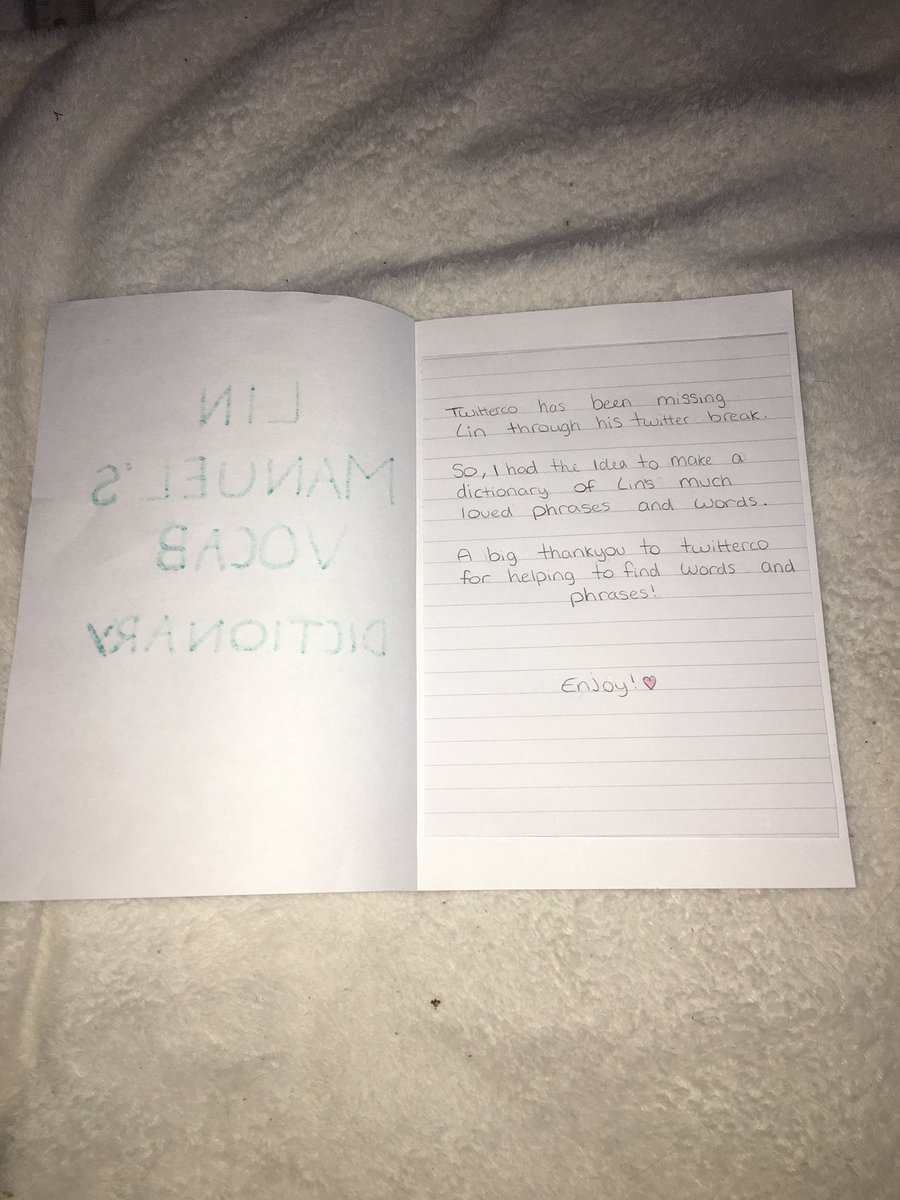 LIN
MANUEL'S
VOCAB
DICTIONARY
Twitterco has been missing
Lin through his twitter break.
So, I had the idea to make a
dictionary of Lins much
loved phrases and words.
A big thankyou to twitterco
for helping to find words and
phrases!
Enjoy!♥